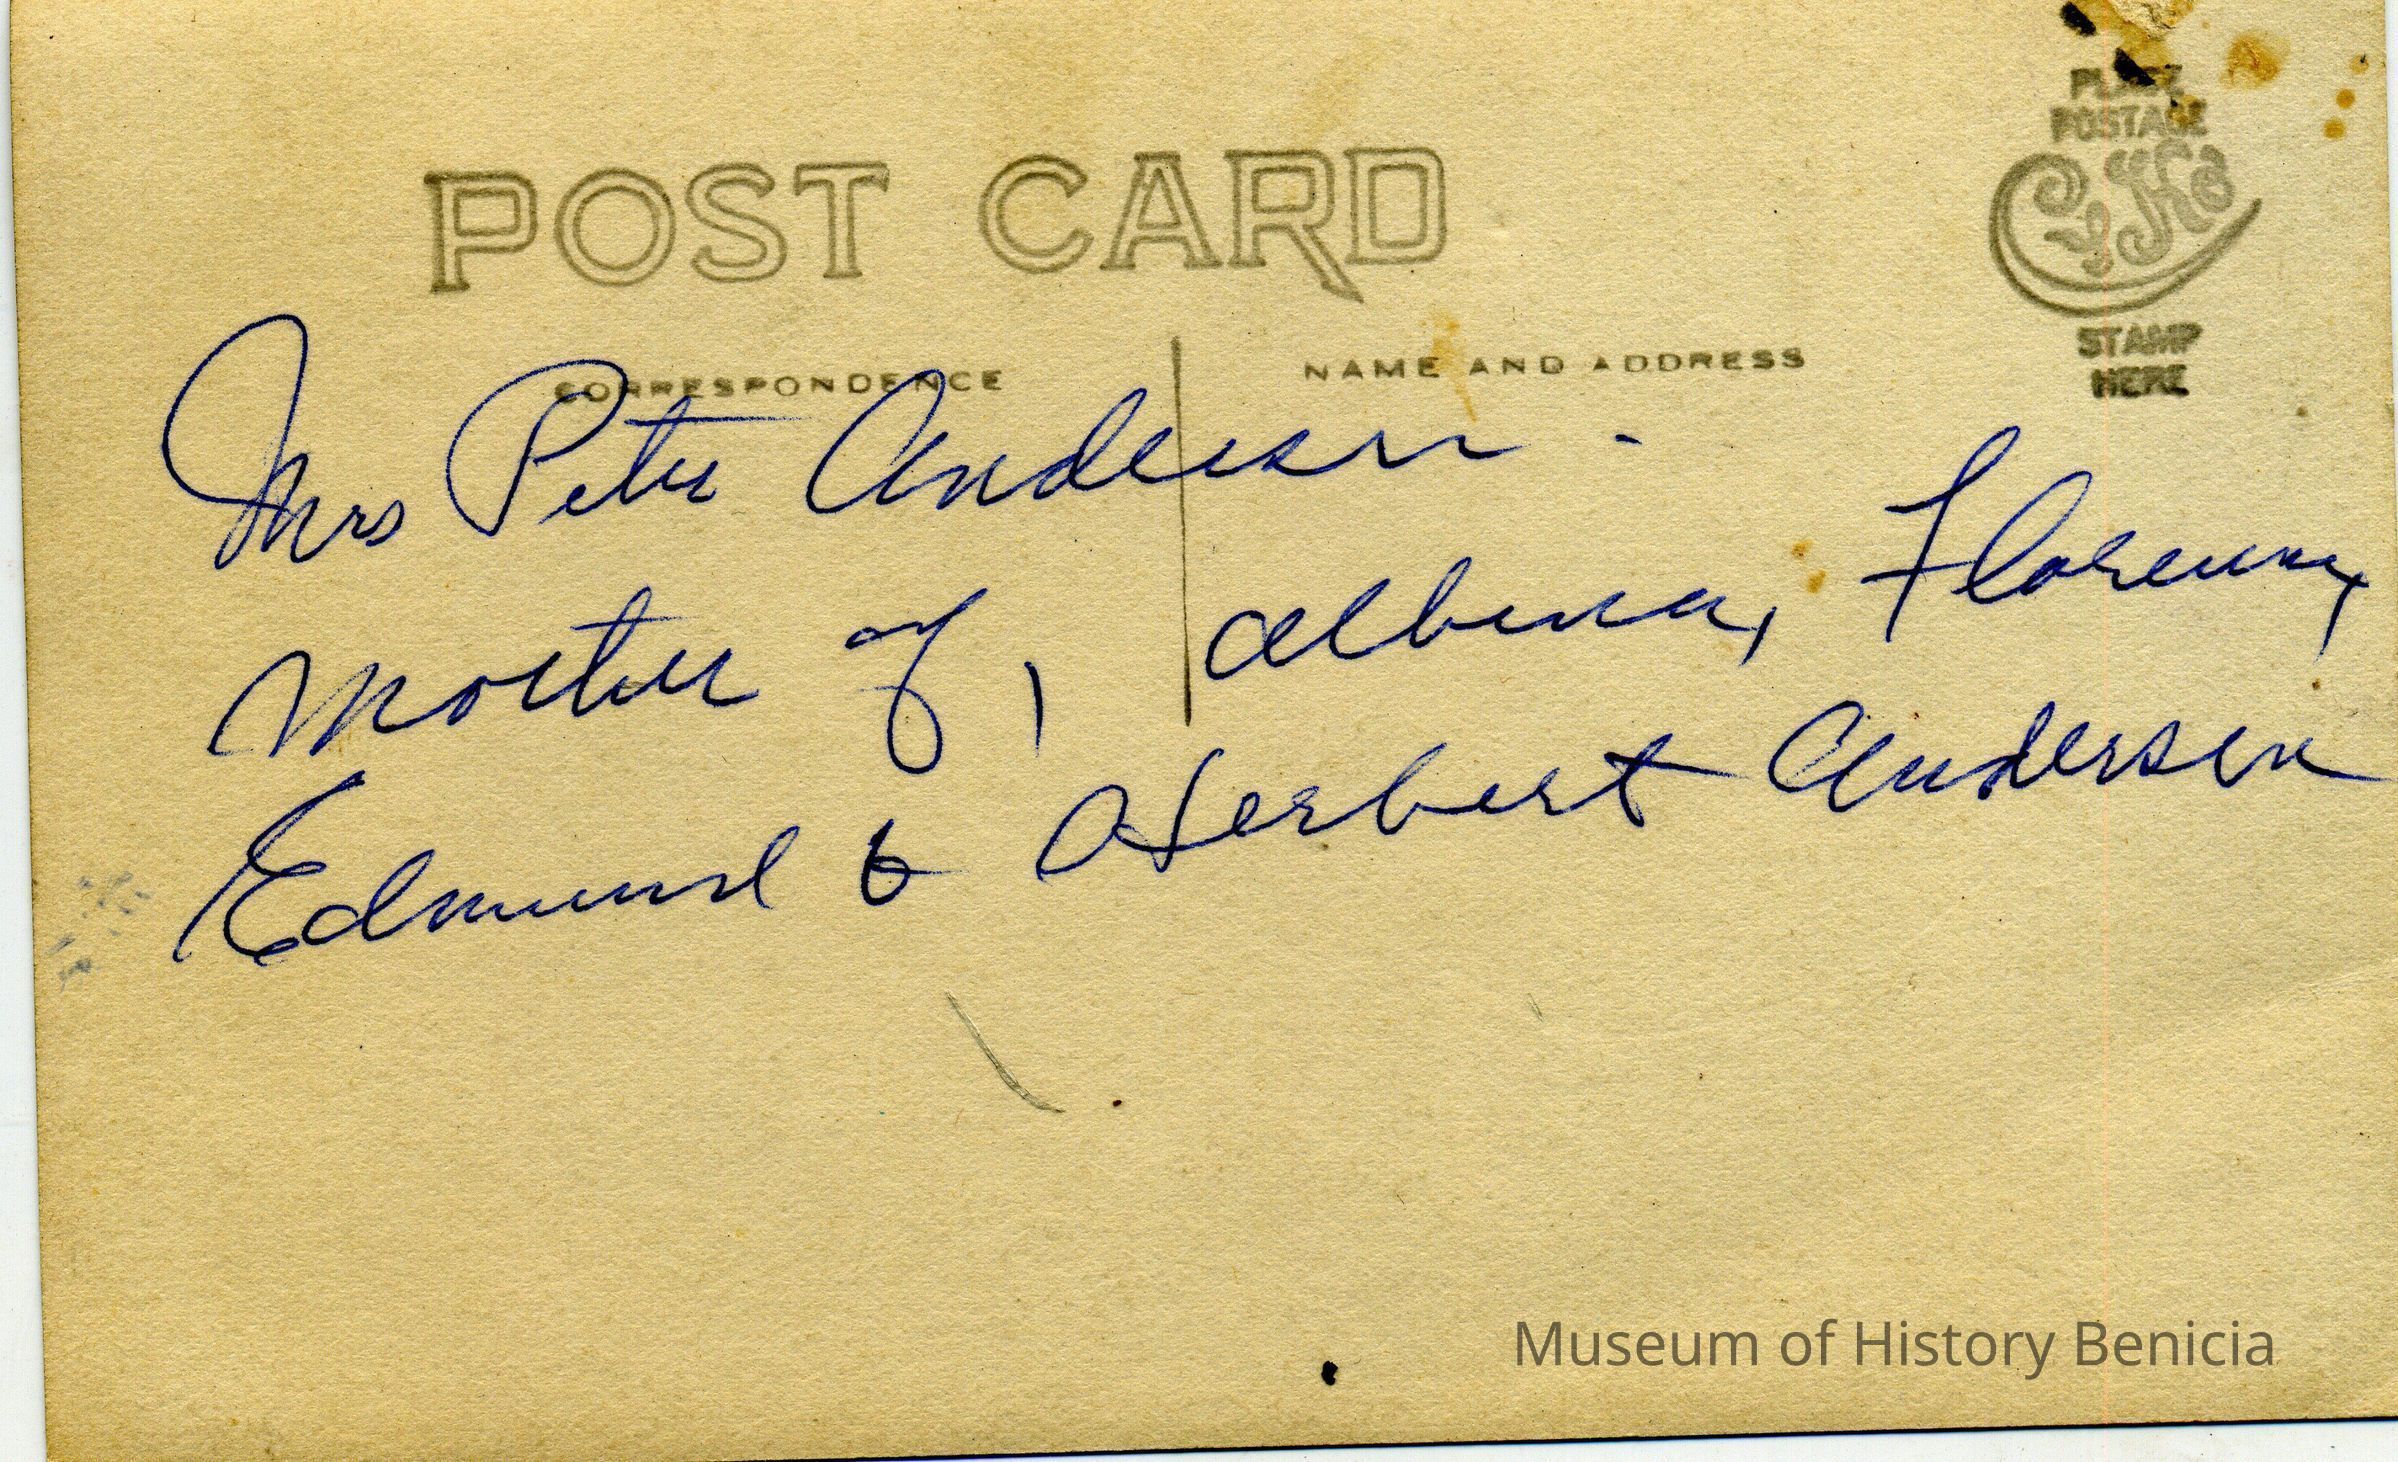 POST CARD
PLACE
POSTAGE
CYKO
STAMP
HERE
CORRESPONDENCE
NAME AND ADDRESS
Mrs Peter Andersen -
Mother of, Albena, Florence,
Edmund & Herbert Andersen
Museum of History Benicia